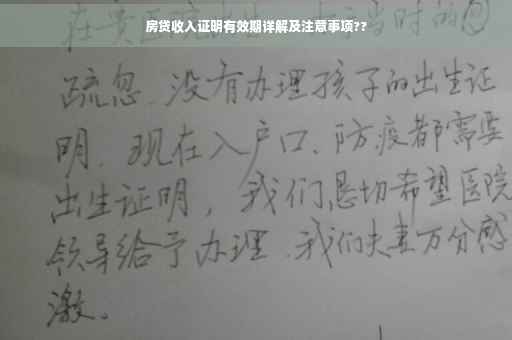 房贷收入证明有效期详解及注意事项??
在贵医院出生，与当时的
疏忽、没有办理孩子的出生证
明、现在入户口、防疫都需要
出生证明，我们恳切希望医院
领导给予办理、我们夫妻万分感
激。